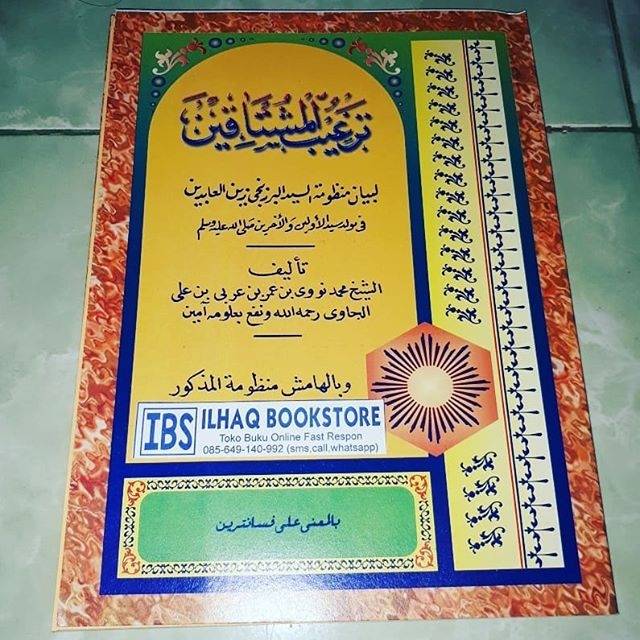 ترغيب المشتاقين
لبيان منظومة السيد البرزنجي زين العابدين
في مولد سيد الأولين والآخرين صلى الله عليه وسلم
تأليف
الشيخ محمد نووي بن عمر بن عربي بن علي
الجاوى رحمه الله ونفع بعلومه آمين
وبالهامش منظومة المذكور
IBS
ILHAQ BOOKSTORE
Toko Buku Online Fast Respon
085-649-140-992 (sms,call,whatsapp)
بالمعنى على فسانترين